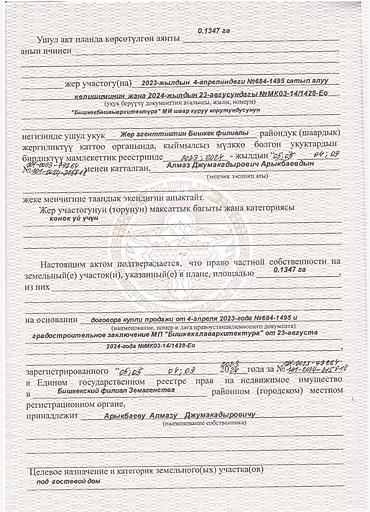 0.1347 га
Ушул акт планда көрсөтүлгөн аянты
анын ичинен
жер участогу(на) 2023-жылдын 4-апрелиндеги №684-1495 сатып алуу
келишиминин жана 2024-жылдын 23-августундагы №МК03-14/1428-Ео
(укук берүүчү документтин аталышы, жылы, номери)
"Бишкекбашкыархитектура" МИ шаар курулуудусунун
негизинде ушул укук Жер агенттигин Бишкек филиалы райондук (шаардык)
жергиликтүү каттоо органында, кыймылсыз мүлккө болгон укуктардын
бирдиктүү мамлекеттик реестринде 2023, 2024 - жылдын "05,05 04,09
менен катталган, Алмаз Джумакадырович Арыкбаевдын
(менчик ээсинин аты)
жеке менчигине таандык экендигин аныктайт.
Жер участогунун (торунун) максаттык багыты жана категориясы
конок үй учүн
Настоящим актом подтверждается, что право частной собственности на
земельный(е) участок(и), указанный(е) в плане, площадью 0.1347 га
из них
на основании договора купли продажи от 4-апреля 2023-года №684-1495 и
(наименование, номер и дата правоустанавливающего документа)
градостроительное заключение МП "Бишкекглавархитектура" от 23-августа
2024-года №МК03-14/1428-Ео
зарегистрированного "05,05 04,09 2023 2024 года за №
в Едином государственном реестре прав на недвижимое имущество
в Бишкекский филиал Земагенства районном (городском) местном
регистрационном органе,
принадлежит Арыкбаеву Алмазу Джумакадыровичу
(наименование собственника)
Целевое назначение и категория земельного(ых) участка(ов)
под гостевой дом